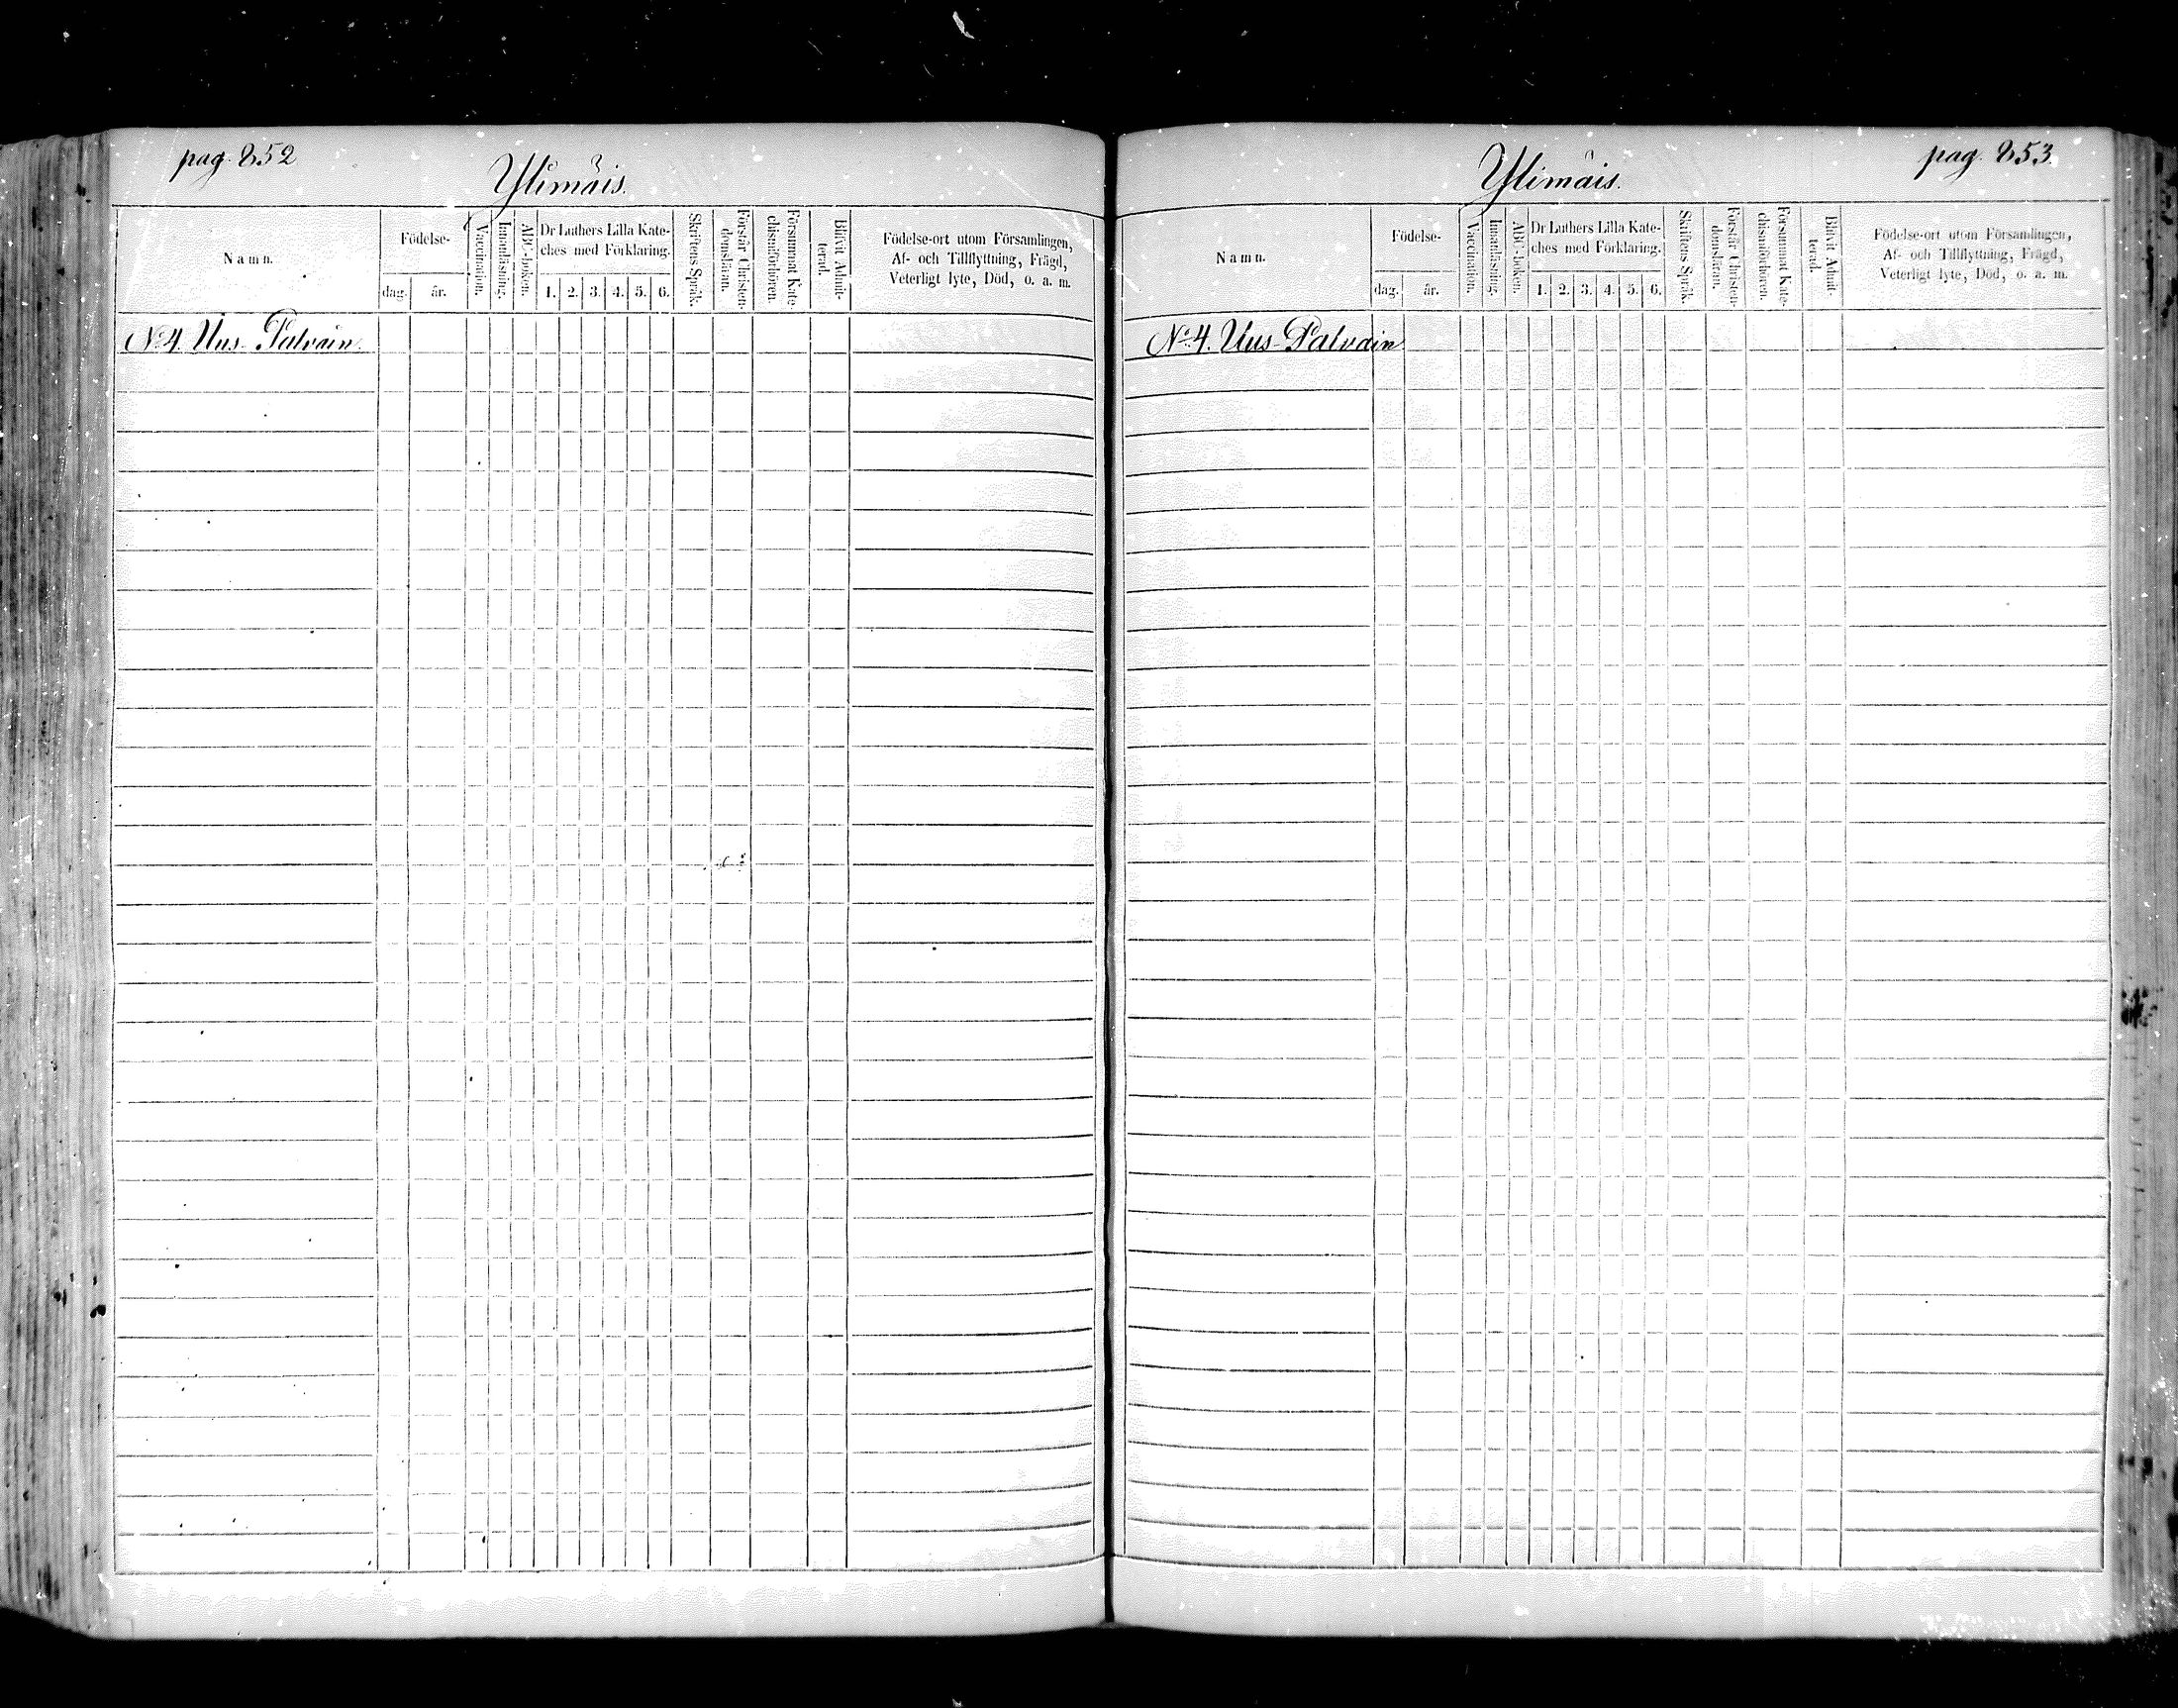 pag. 852
Ylimäis.
Namn.
Födelse-
dag. år.
Vaccination.
Innanläsning.
ABC-boken.
Dr Luthers Lilla Kate-
ches med Förklaring.
1. 2. 3. 4. 5. 6.
Skriftens Språk.
Förstår Christen-
domsläran.
Försummat Kate-
chismiförhören.
Blifvit Admit-
terad.
Födelse-ort utom Församlingen,
Af- och Tillflyttning, Frägd,
Veterligt lyte, Död, o. a. m.
No 4. Uus-Palvain.
pag. 853.
Ylimäis.
Namn.
Födelse-
dag. år.
Vaccination.
Innanläsning.
ABC-boken.
Dr Luthers Lilla Kate-
ches med Förklaring.
1. 2. 3. 4. 5. 6.
Skriftens Språk.
Förstår Christen-
domsläran.
Försummat Kate-
chismiförhören.
Blifvit Admit-
terad.
Födelse-ort utom Församlingen,
Af- och Tillflyttning, Frägd,
Veterligt lyte, Död, o. a. m.
No 4. Uus-Palvain